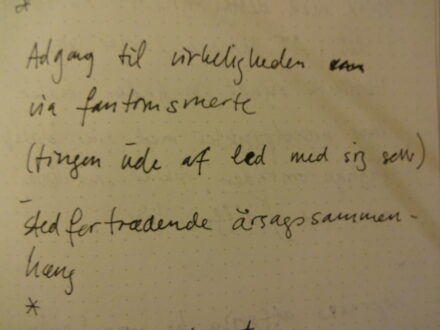 *
Adgang til virkeligheden
via fantomsmerte
(tingen ude af led med sig selv)
–
stedfortrædende årsagssammen-
hæng
*